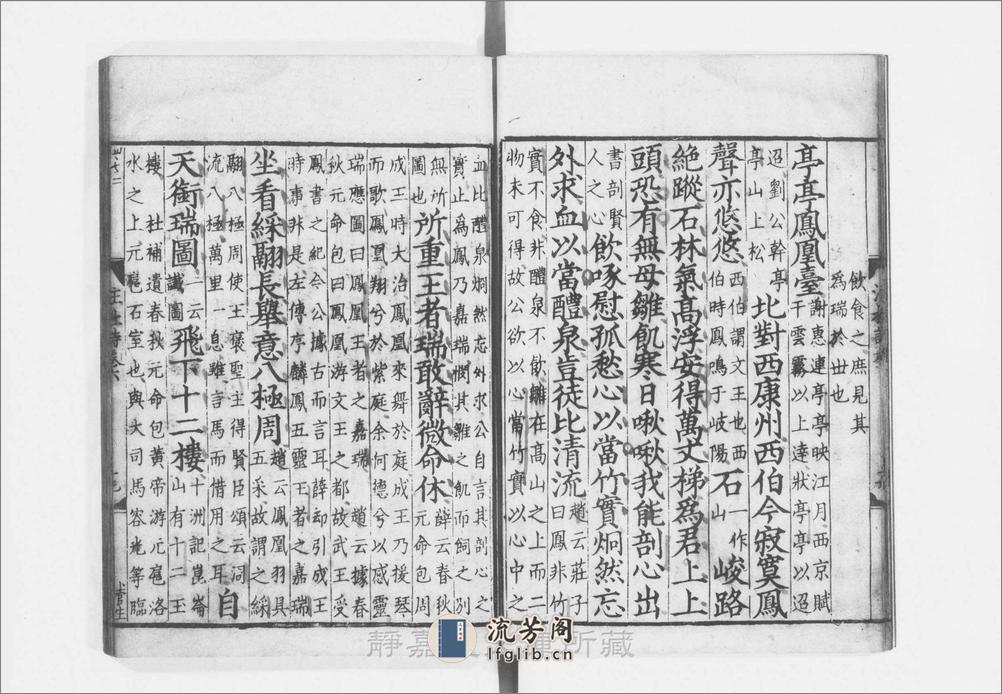 飲食之庶見其
為瑞於世也
亭亭鳳凰臺
謝惠連亭亭映江月西京賦
干雲霧以上達狀亭亭以迢
迢劉公幹亭
亭山上松
北對西康州西伯今寂寞鳳
聲亦悠悠
西伯謂文王也西
伯時鳳鳴于岐陽
石一作峻路
絶蹤石林氣高浮安得萬丈梯為君上上
頭恐有無母雛飢寒日啾啾我能剖心出
書剖賢
人之心
飲啄慰孤愁心以當竹實炯然忘
外求血以當醴泉豈徒比清流
趙云莊子
曰鳳非竹
實不食非醴泉不飲雛在高山之上而二
物未可得故公欲以心當竹實以心中之
血比醴泉炯然忘外求公自言其剖心之
實止為鳳乃嘉瑞憫其雛之飢而飼之別
無所
圖也
所重王者瑞敢辭微命休
薛云春秋
元命包周
成王時大治鳳凰來舞於庭成王乃援琴
而歌鳳凰翔兮於紫庭余何德兮以感靈
瑞應圖曰鳳凰王者之嘉瑞 趙云據春
秋元命包曰鳳凰游文王之都故武王受
鳳書之紀今公據古而言耳薛却引成王
時事非是左傳序麟鳳五靈王者之嘉瑞
坐看綵翮長舉意八極周
趙云鳳凰羽具
五采故謂之綵
翮八極周使王褒聖主得賢臣頌云周
流八極萬里一息雖言馬而借用之耳
自
天銜瑞圖
一云
讖圖
飛下十二樓
十洲記崑崙
山有十二玉
樓 杜補遺春秋元命包黃帝游元扈洛
水之上元扈石室也與大司馬容光等臨
流芳阁
lfglib.cn
靜嘉 所藏